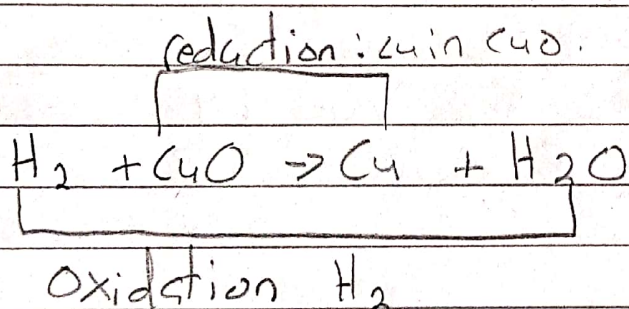 reduction: Cu in CuO.
H2 + CuO → Cu + H2O
Oxidation H2